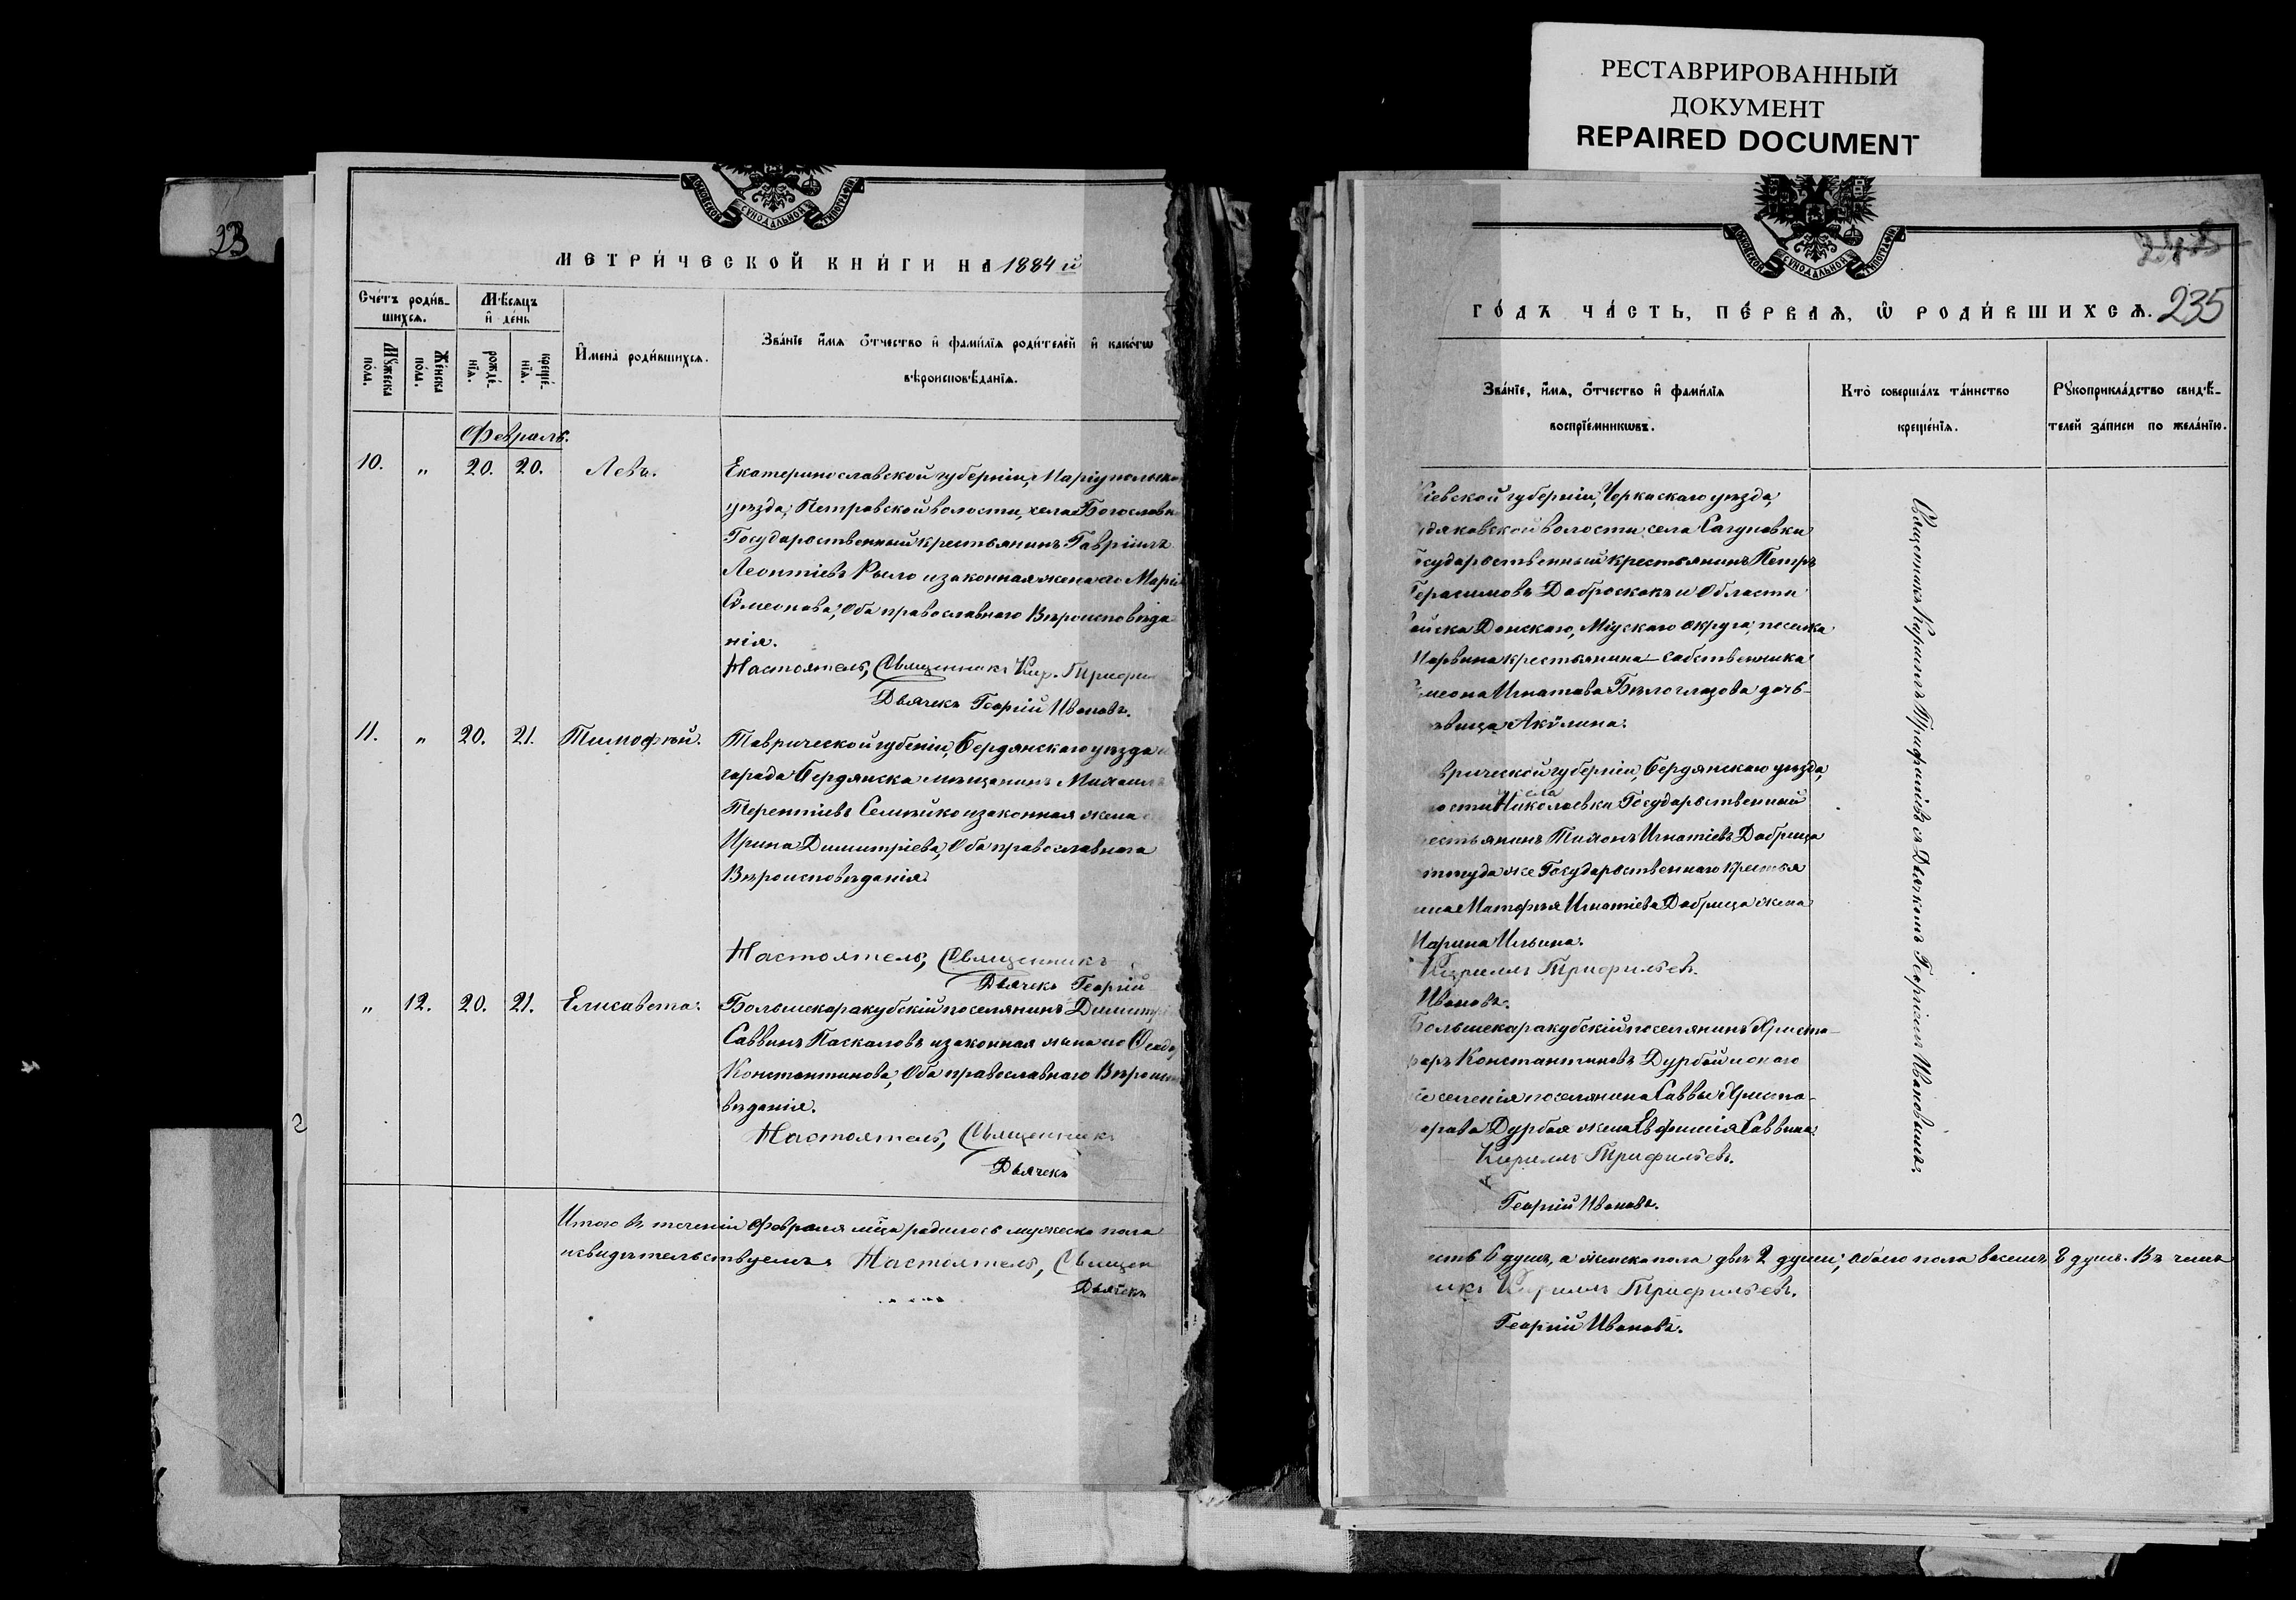 РЕСТАВРИРОВАННЫЙ
ДОКУМЕНТ
REPAIRED DOCUMENT
23
МОСКОВСКОЙ СѴНОДАЛЬНОЙ ТИПОГРАФІИ
МЕТРИ́ЧЕСКОЙ КНИ́ГИ НА 1884 й
Сче́тъ роди́в-
шихсѧ.
Мѣ́сѧцъ
и҆ де́нь
И҆мена̀ роди́вшихсѧ.
Зва́нїе и҆́мѧ ѻ҆́тчество и҆ фами́лїѧ роди́телей и҆ како́гѡ
вѣроисповѣ́данїѧ.
Мꙋ́жеска
по́ла.
Же́нска
по́ла.
рожде́-
нїѧ.
креще́-
нїѧ.
Февраль.
10. „ 20. 20. Левъ. Екатеринославской губерніи, Маріупольска
уѣзда, Петровской волости, села Богословк
Государственный крестьянинъ Гавріилъ
Леонтіевъ Рыло и законная жена его Марі
Сѵмеонова, Оба православнаго Вѣроисповѣда
нія.
Настоятель, Священникъ Кир. Трифи
Дьячекъ Георгій Ивановъ.
11. „ 20. 21. Тимофѣй. Таврической губеніи, Бердянскаго уѣзда
города Бердянска мѣщанинъ Михаилъ
Терентіевъ Семѣйко и законная жена
Ирина Димитріева, Оба православнаго
Вѣроисповѣданія.
Настоятель, Священникъ
Дьячекъ Георгій
„ 12. 20. 21. Елисавета. Большекаракубскій поселянинъ Димитр
Саввинъ Паскаловъ и законная жена его Ѳеодо
Константинова, Оба православнаго Вѣроис
вѣданія.
Настоятель, Священникъ
Дьячекъ
Итого въ теченіи Февраля мѣца родилось мужеска пола
и свидѣтельствуемъ. Настоятель, Священ
Дьячекъ
2
МОСКОВСКОЙ СѴНОДАЛЬНОЙ ТИПОГРАФІИ
ГО́ДЪ ЧА́СТЬ, ПЕ́РВАѦ, Ѡ҆ РОДИ́ВШИХСѦ. 235
Зва́нїе, и҆́мѧ, ѻ҆́тчество и҆ фами́лїѧ
воспрїе́мникѡвъ.
Кто̀ соверша́лъ та́инство
креще́нїѧ.
Рꙋкоприкла́дство свидѣ́-
телей за́писи по жела́нїю.
іевской губерніи, Черкаскаго уѣзда,
дяковской волости, села Сагуновки
осударственный крестьянинъ Петръ
Герасимовъ Доброскокъ и Области
ойска Донскаго, Міускаго округа, поселка
крестьянина-собственника
меона Игнатова Бѣлоглазова дочь-
ѣвица Акѵлина.
врической губерніи, Бердянскаго уѣзда,
ости села Николаевки Государственный
естьянинъ Тихонъ Игнатіевъ Добрица
оттуда же Государственнаго крестья
нина Матфѣя Игнатіева Добрица жена
Марина Ильина.
Кириллъ Трифильевъ.
Ивановъ.
Большекаракубскій поселянинъ Христо-
форъ Константиновъ Дурбай и онаго
же селенія поселянина Саввы Христо-
форова Дурбая жена Евфимія Саввина.
Кириллъ Трифильевъ.
Георгій Ивановъ.
Священникъ Кириллъ Трифильевъ съ Дьячкомъ Георгіемъ Ивановымъ.
сть 6 душъ, а женска пола двѣ 2 души; обоего пола восемь 8 душъ. Въ чемъ
икъ Кириллъ Трифильевъ.
Георгій Ивановъ.